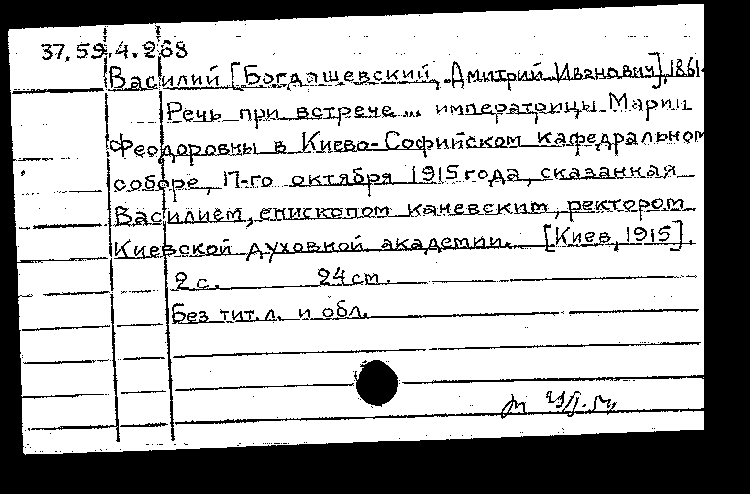 37.59.4.268
Василий [Богдашевский, Дмитрий Иванович], 1861-
Речь при встрече... императрицы Марии
Феодоровны в Киево-Софийском кафедральном
соборе, 17-го октября 1915 года, сказанная
Василием, епископом каневским, ректором
Киевской духовной академии. [Киев, 1915].
2 с. 24 cm.
Без тит.л. и обл.